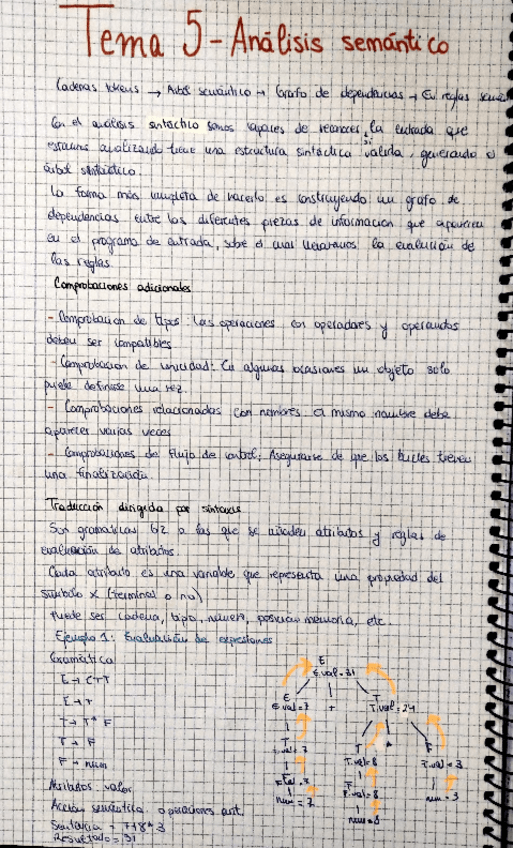 Tema 5 - Análisis semántico
Cadenas tokens → Arbol semántico → Grafo de dependencias → Ev reglas
Con el análisis sintáctico somos capaces de reconocer si la entrada que
estamos analizando tiene una estructura sintáctica válida, generando el
árbol sintáctico.
La forma más completa de hacerlo es construyendo un grafo de
dependencias entre las diferentes piezas de información que aparecen
en el programa de entrada, sobre el cual llevaremos la evaluación de
las reglas
Comprobaciones adicionales
- Comprobación de tipos: Las operaciones con operadores y operandos
deben ser compatibles
- Comprobación de unicidad: En algunas ocasiones un objeto solo
puede definirse una vez.
- Comprobaciones relacionadas con nombres el mismo nombre debe
aparecer varias veces
- Comprobaciones de flujo de control: Asegurarse de que los bucles tienen
una finalización.
Traducción dirigida por sintaxis
Son gramáticas G2 a las que se añaden atributos y reglas de
evaluación de atributos
Cada atributo es una variable que representa una propiedad del
símbolo X (terminal o no)
Puede ser cadena, tipo, número, posición memoria, etc.
Ejemplo 1: Evaluación de expresiones
Gramática
E → E+T
E → T
T → T * F
T → F
F → num
Atributos valor
Acción semántica operaciones arit.
Sentencia = 7+8*3
Resultado = 31
E
E.val = 31
E + T
E.val = 7 T.val = 24
T T * F
T.val = 7 T.val = 8 F.val = 3
F.val = 7 F.val = 8 num = 3
num = 7 num = 8